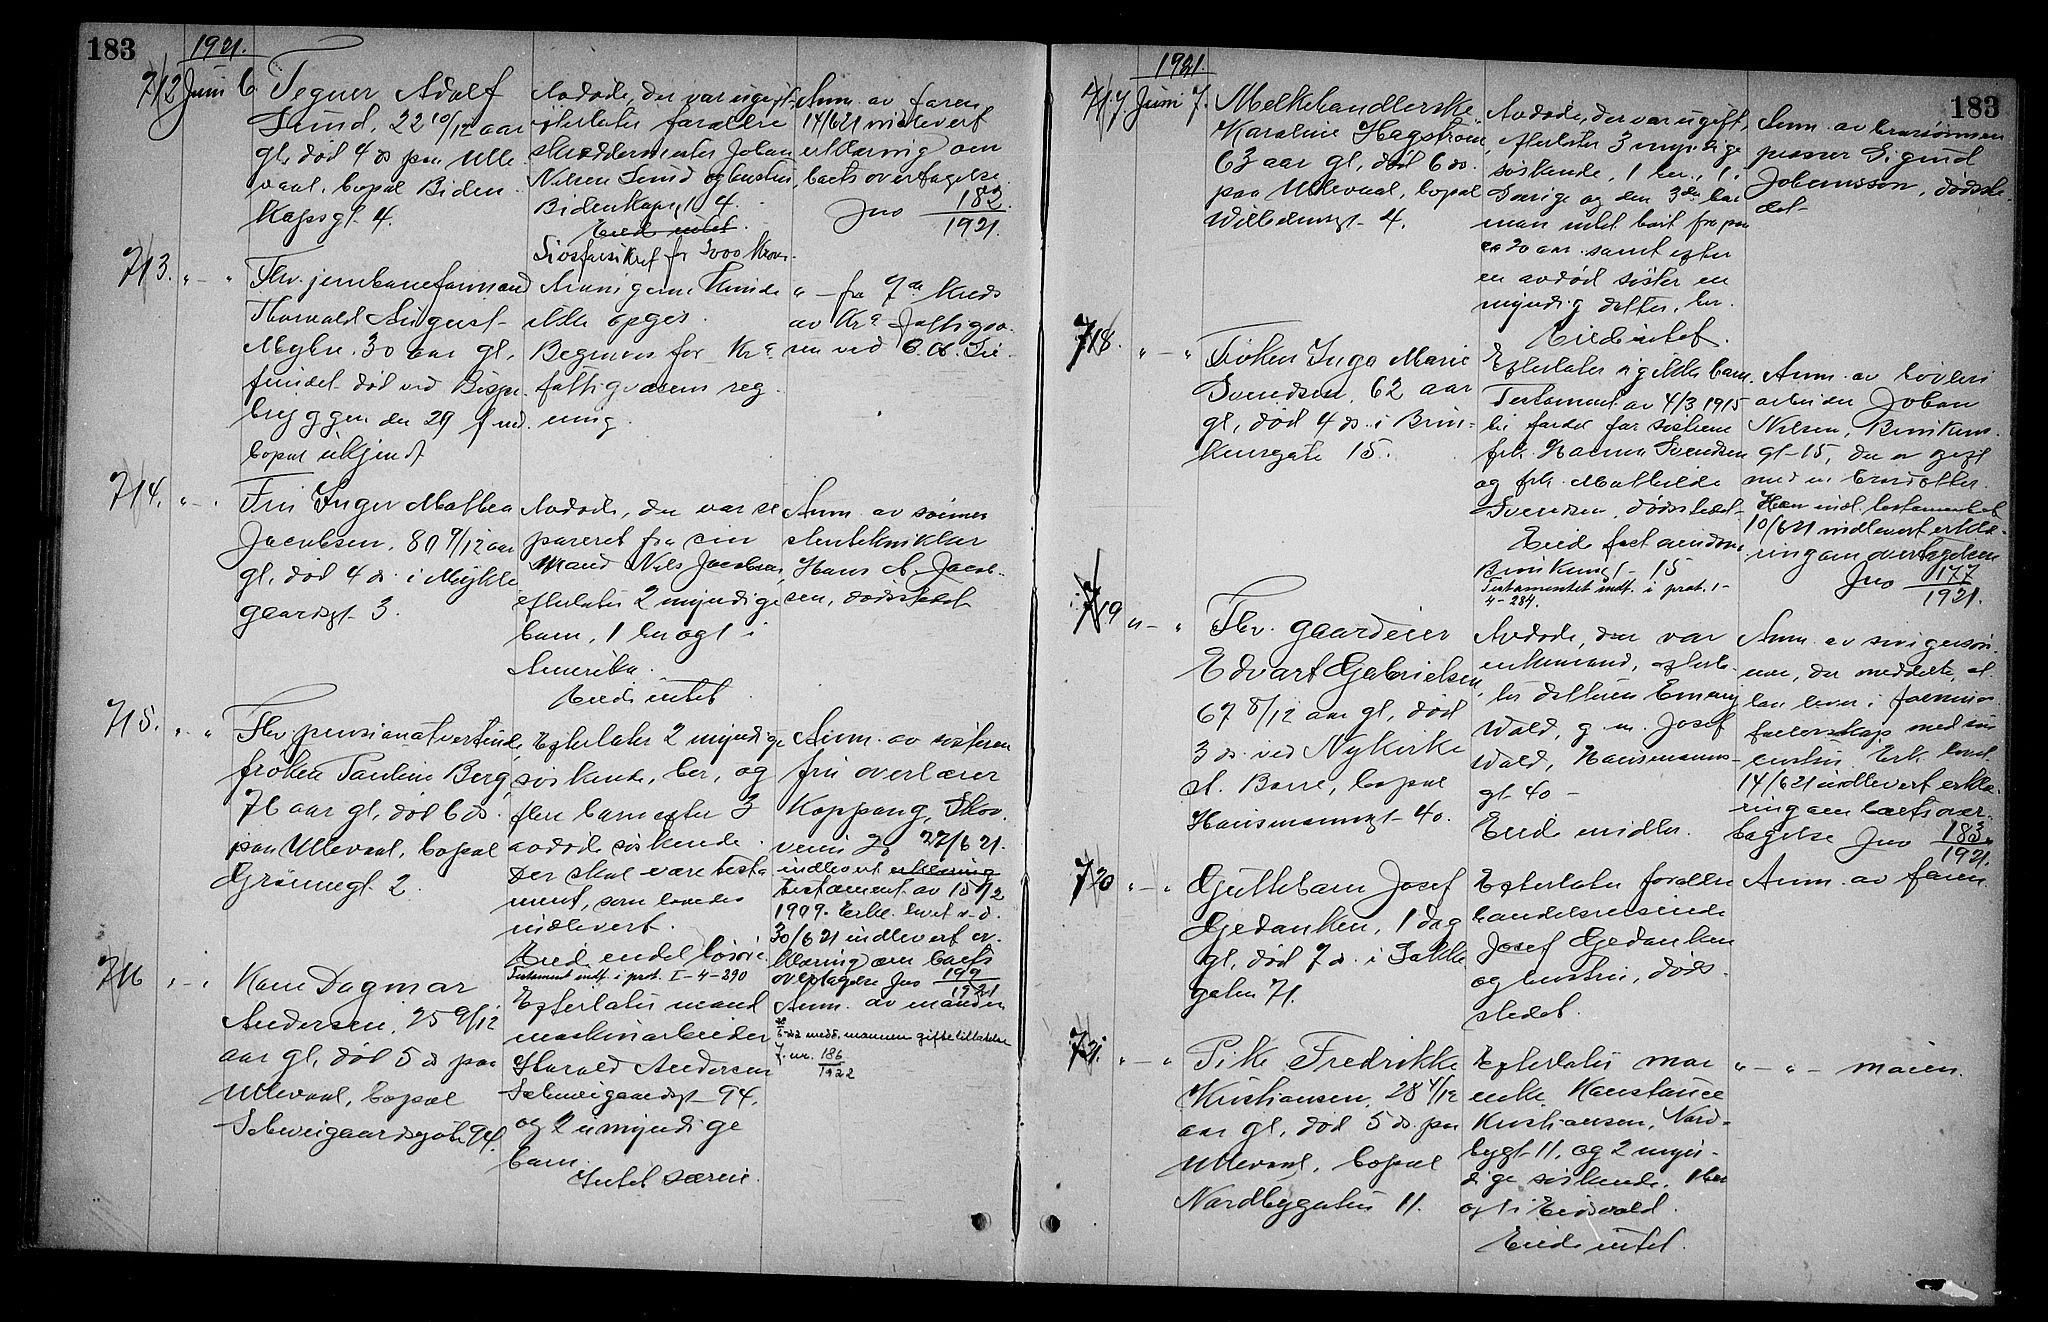 183
1921.
712 Juni 6 Tegner Adolf
Lund, 22 10/12 aar
gl, død 4 ds paa Ulle
vaal, bopæl Biden
kapsgt. 4.
Avdøde, der var ugift,
efterlater forældre
skræddermester Johan
Nilsen Lund og hustru
Bidenkapsgt 4.
Eied intet.
Livsforsikret for 3000 Kroner.
Anm. av faren
14/6 21 indlevert
erklæring om
boets overtagelse
Jno 182
1921.
713. " — " Fhv. jernbaneformand
Thorvald August
Myhre, 30 aar gl,
fundet død ved Bispe
bryggen den 29 f. md.
bopæl ukjendt
Arvingerne kunde
ikke opges.
Begraves for Kr.a
fattigvæsens reg
ning.
" — fra 7de Kreds
av Kr.a fattigvæ
sen ved
714. " — " Fru Inger Mathea
Jacobsen, 80 9/12 aar
gl, død 4 ds. i Mykle
gaardsgt 3.
Avdøde, der var se
pareret fra sin
mand Nils Jacobsen,
efterlater 2 myndige
barn, 1 her og 1 i
Amerika.
Eied intet
Anm. av sønnen
Hans A. Jacob
sen, dødsstedet
715. " — " Fhv. pensionatvertinde,
frøken Pauline Berg,
76 aar gl, død 6 ds.
paa Ullevaal, bopæl
Grønnegt. 2.
Efterlater 2 myndige
søskende, her, og
flere barn efter 3
avdøde søskende.
Der skal være testa
ment, som loves
indlevert.
Eied endel løsøre
Testament indf. i prot. I-4-290
Anm. av søsteren
fru overlærer
Koppang, Skov
veien 20 22/6 21.
indlevert erklæring
testament av 15/12
1909. Erkl. lovet s. d.
30/6 21 indlevert er
klæring om boets
overtagelse Jno 199
1921
716 " — " Karen Dagmar
Andersen, 25 9/12
aar gl, død 5 ds paa
Ullevaal, bopæl
Schweigaardsgate 94.
Efterlater mand
maskinarbeider
Harald Andersen
Schweigaardsgt 94,
og 2 umyndige
barn.
Intet særeie.
Anm. av manden
medd. mannen giftetillatelse
J. nr. 186
1922
1921.
183
717 Juni 7. Melkehandlerske
Karoline Hagstrøm
63 aar gl, død 6 ds.
paa Ullevaal, bopæl
Wilhelmsgt 4.
Avdøde, der var ugift,
efterlater 3 myndige
søskende, 1 her, 1 i
Sverige og den 3de har
man intet hørt fra paa
ca 20 aar samt efter
en avdød søster en
myndig datter, her.
Eied intet.
Anm. av brorsønnen
presser Sigurd
Johansson, dødsste
det
718. " — " Frøken Inga Marie
Svendsen, 62 aar
gl, død 4 ds. i Brin
kensgate 15.
Efterlater ikke barn.
Testament av 4/3 1915
til fordel for søstrene
frk. Hanna Svendsen
og frk. Mathilde
Svendsen, dødsstedet
Eied fast eiendom
Brinkensgt 15
Testamentet indf. i prot. I-
4-284.
Anm. av
arbeider Johan
Nilsen, Brinkens
gt 15, der er gift
med en brordatter.
Han indl. testamentet
10/6 21 indlevert erklæ
ring om overtagelsen
Jno 177
1921.
719 " — " Fhv. gaardeier
Edvart Gabrielsen,
67 8/12 aar gl, død
3 ds. ved Nykirke
st. Borre, bopæl
Hausmannsgt 40.
Avdøde, der var
enkemand, efterla
ter datteren Emmy
Wold, g. m. Josef
Wold, Hausmanns
gt 40 —
Eied midler.
Anm. av svigersøn
nen, der meddelte, at
han lever i formues
fællesskap med sin
hustru. Erkl. lovet
14/6 21 indlevert erklæ
ring om boets over
tagelse Jno 183
1921.
720 " — " Guttebarn Josef
Gjedanken, 1 dag
gl, død 7 ds. i Jakke
gaten 71.
Efterlater forældre
handelsreisende
Josef Gjedanken
og hustru, døds
stedet.
Anm. av faren
721. " — " Pike Fredrikke
Kristiansen, 28 4/12
aar gl, død 5 ds. paa
Ullevaal, bopæl
Nordbygaten 11.
Efterlater mor
enke Konstance
Kristiansen, Nord
bygt 11, og 2 myn
dige søskende, 1 her
og 1 i Eidsvold.
Eied intet.
" — " — moren.